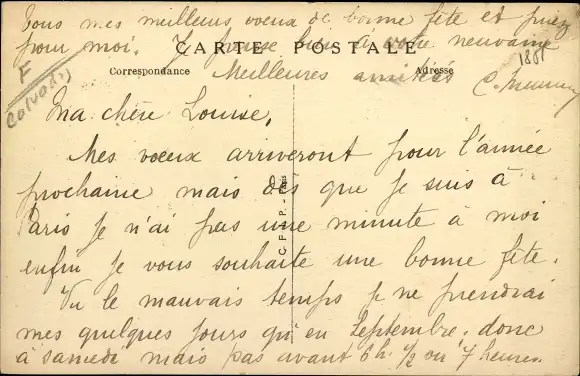 Tous mes meilleurs voeux de bonne fête et priez
pour moi. J'y pense bien à votre neuvaine
CARTE POSTALE
Correspondance
Adresse
Meilleures amitiés
1801
F
Calvados
Ma chère Louise,
Mes voeux arriveront pour l'année
prochaine mais dès que je suis à
Paris je n'ai pas une minute à moi
enfin je vous souhaite une bonne fête.
Vu le mauvais temps je ne prendrai
mes quelques jours qu'en Septembre. donc
à samedi mais pas avant 6h. 1/2 ou 7 heures.
C.F.P.-